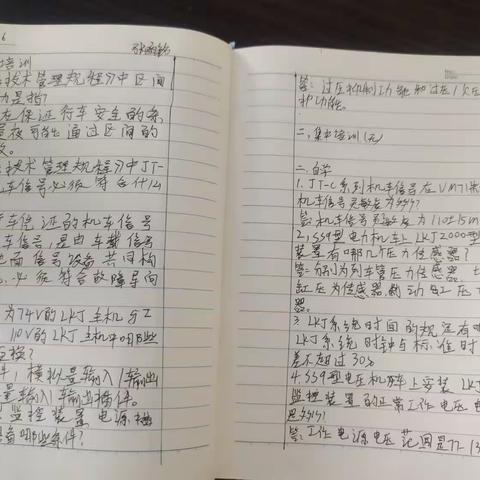 6
培训
技术管理规程》中区间
力是指?
在保证行车安全的条
昼夜可能通过区间的
数。
技术管理规程》中JT-
机车信号必须符合什么
车信号
车信号,是由车载信号
地面信号设备共同构
,必须符合故障导向
为74V的LKJ主机与工
110V的LKJ主机中哪些
互换?
件,模拟量输入/输出
量输入/输出插件。
监控装置电源插
备哪些条件?
答:过压抑制功能和过压/欠压
护功能。
二,集中培训(无)
二.自学
1.JT-C系列机车信号在UM71
机车信号灵敏度为多少?
答:机车信号灵敏度为110±15m
2.SS9型电力机车上LKJ2000型
装置有哪几个压力传感器?
答:分别为列车管压力传感器
缸压力传感器,制动缸压
器。
3.LKJ系统时间的规定有哪
LKJ系统时钟与标准时
差不超过30s
4.SS9型电力机车上安装LKJ
监控装置的正常工作电压
是多少?
答:工作电源电压范围是77